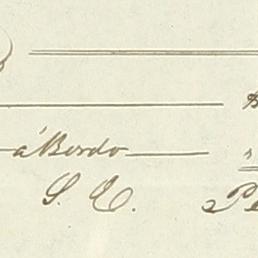 á Bordo
S. E.